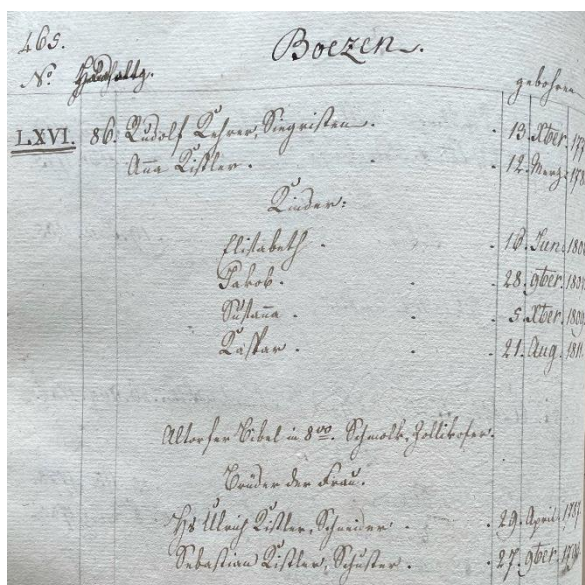 465.
Boezen.
No. Haushaltg.
gebohren
LXVI. 86. Rudolf Kehrer, Siegristen. 13. Xber.
Anna Kistler. 12. Merz.
Kinder:
Elisabeth. 16. Jun.
Jakob. 28. 9ber.
Susanna. 5. Xber.
Kaspar. 21. Aug. 1811.
Altorfer Bibel in 8vo. Schmolk, Zollikofer.
Brüder der Frau.
Hs Ulrich Kistler, Schneider. 29. April.
Sebastian Kistler, Schuster. 27. 9ber.